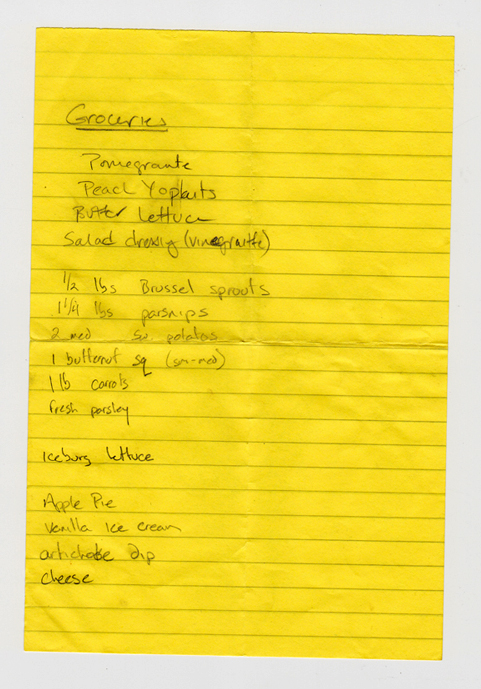 Groceries
Pomegrante
Peach Yoplaits
Butter lettuce
Salad dressig (vinegraitte)
1/2 lbs Brussel sprouts
1 1/4 lbs parsnips
2 med sw. potatos
1 butternut sq (sm-med)
1 lb carrots
fresh parsley
Iceburg lettuce
Apple Pie
Vanilla Ice cream
artichoke dip
cheese